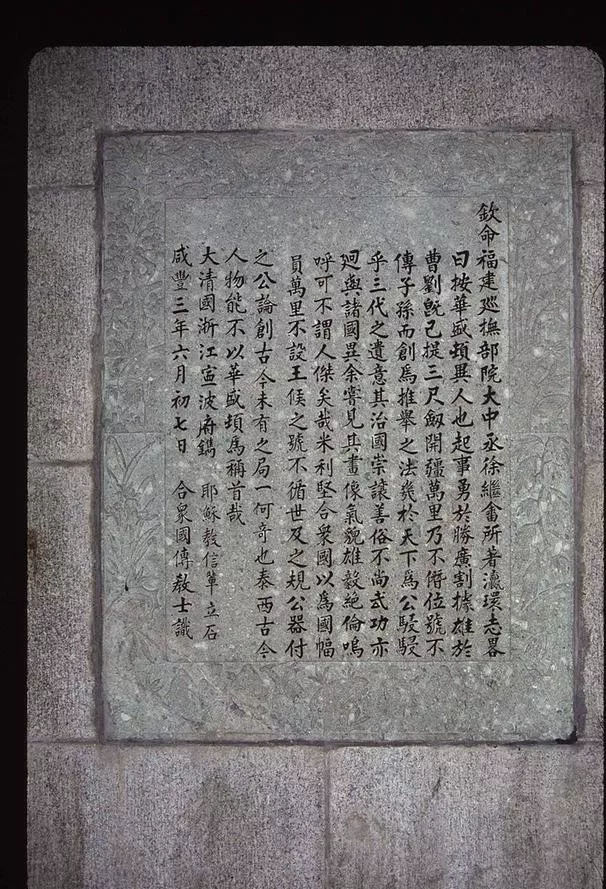 欽命福建巡撫部院大中丞徐繼畬所著瀛環志畧
曰按華盛頓異人也起事勇於勝廣割據雄於
曹劉既已提三尺劒開疆萬里乃不僭位號不
傳子孫而創為推舉之法幾於天下為公駸駸
乎三代之遺意其治國崇讓善俗不尚武功亦
迥與諸國異余嘗見其畫像氣貌雄毅絕倫嗚
呼可不謂人傑矣哉米利堅合衆國以為國幅
員萬里不設王侯之號不循世及之規公器付
之公論創古今未有之局一何奇也泰西古今
人物能不以華盛頓為稱首哉
大清國浙江寧波府鐫 耶穌教信輩立石
咸豐三年六月初七日 合衆國傳教士識